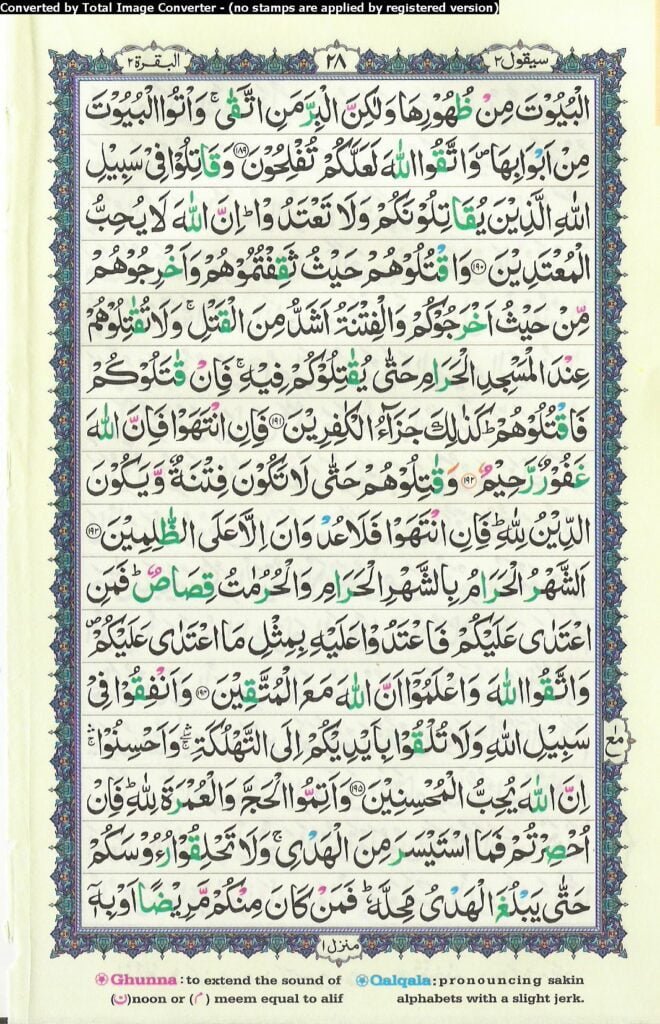 Converted by Total Image Converter - (no stamps are applied by registered version)
سيقول ٢
٢٨
البقرة ٢
الْبُيُوْتَ مِنْ ظُهُوْرِهَا وَلٰكِنَّ الْبِرَّ مَنِ اتَّقٰىۚ وَاْتُوا الْبُيُوْتَ
مِنْ اَبْوَابِهَا۪ وَاتَّقُوا اللّٰهَ لَعَلَّكُمْ تُفْلِحُوْنَ ۝١٨٩ وَقَاتِلُوْا فِيْ سَبِيْلِ
اللّٰهِ الَّذِيْنَ يُقَاتِلُوْنَكُمْ وَلَا تَعْتَدُوْاؕ اِنَّ اللّٰهَ لَا يُحِبُّ
الْمُعْتَدِيْنَ ۝١٩٠ وَاقْتُلُوْهُمْ حَيْثُ ثَقِفْتُمُوْهُمْ وَاَخْرِجُوْهُمْ
مِّنْ حَيْثُ اَخْرَجُوْكُمْ وَالْفِتْنَةُ اَشَدُّ مِنَ الْقَتْلِۚ وَلَا تُقٰتِلُوْهُمْ
عِنْدَ الْمَسْجِدِ الْحَرَامِ حَتّٰى يُقٰتِلُوْكُمْ فِيْهِۚ فَاِنْ قٰتَلُوْكُمْ
فَاقْتُلُوْهُمْؕ كَذٰلِكَ جَزَآءُ الْكٰفِرِيْنَ ۝١٩١ فَاِنِ انْتَهَوْا فَاِنَّ اللّٰهَ
غَفُوْرٌ رَّحِيْمٌ ۝١٩٢ وَقٰتِلُوْهُمْ حَتّٰى لَا تَكُوْنَ فِتْنَةٌ وَّيَكُوْنَ
الدِّيْنُ لِلّٰهِؕ فَاِنِ انْتَهَوْا فَلَا عُدْوَانَ اِلَّا عَلَى الظّٰلِمِيْنَ ۝١٩٣
اَلشَّهْرُ الْحَرَامُ بِالشَّهْرِ الْحَرَامِ وَالْحُرُمٰتُ قِصَاصٌؕ فَمَنِ
اعْتَدٰى عَلَيْكُمْ فَاعْتَدُوْا عَلَيْهِ بِمِثْلِ مَا اعْتَدٰى عَلَيْكُمْ۪
وَاتَّقُوا اللّٰهَ وَاعْلَمُوْۤا اَنَّ اللّٰهَ مَعَ الْمُتَّقِيْنَ ۝١٩٤ وَاَنْفِقُوْا فِيْ
سَبِيْلِ اللّٰهِ وَلَا تُلْقُوْا بِاَيْدِيْكُمْ اِلَى التَّهْلُكَةِۛۚ وَاَحْسِنُوْاۛۚ
اِنَّ اللّٰهَ يُحِبُّ الْمُحْسِنِيْنَ ۝١٩٥ وَاَتِمُّوا الْحَجَّ وَالْعُمْرَةَ لِلّٰهِؕ فَاِنْ
اُحْصِرْتُمْ فَمَا اسْتَيْسَرَ مِنَ الْهَدْيِۚ وَلَا تَحْلِقُوْا رُءُوْسَكُمْ
حَتّٰى يَبْلُغَ الْهَدْيُ مَحِلَّهٗؕ فَمَنْ كَانَ مِنْكُمْ مَّرِيْضًا اَوْ بِهٖۤ
منزل ١
Ghunna: to extend the sound of
(ن)noon or (م) meem equal to alif
Qalqala: pronouncing sakin
alphabets with a slight jerk.